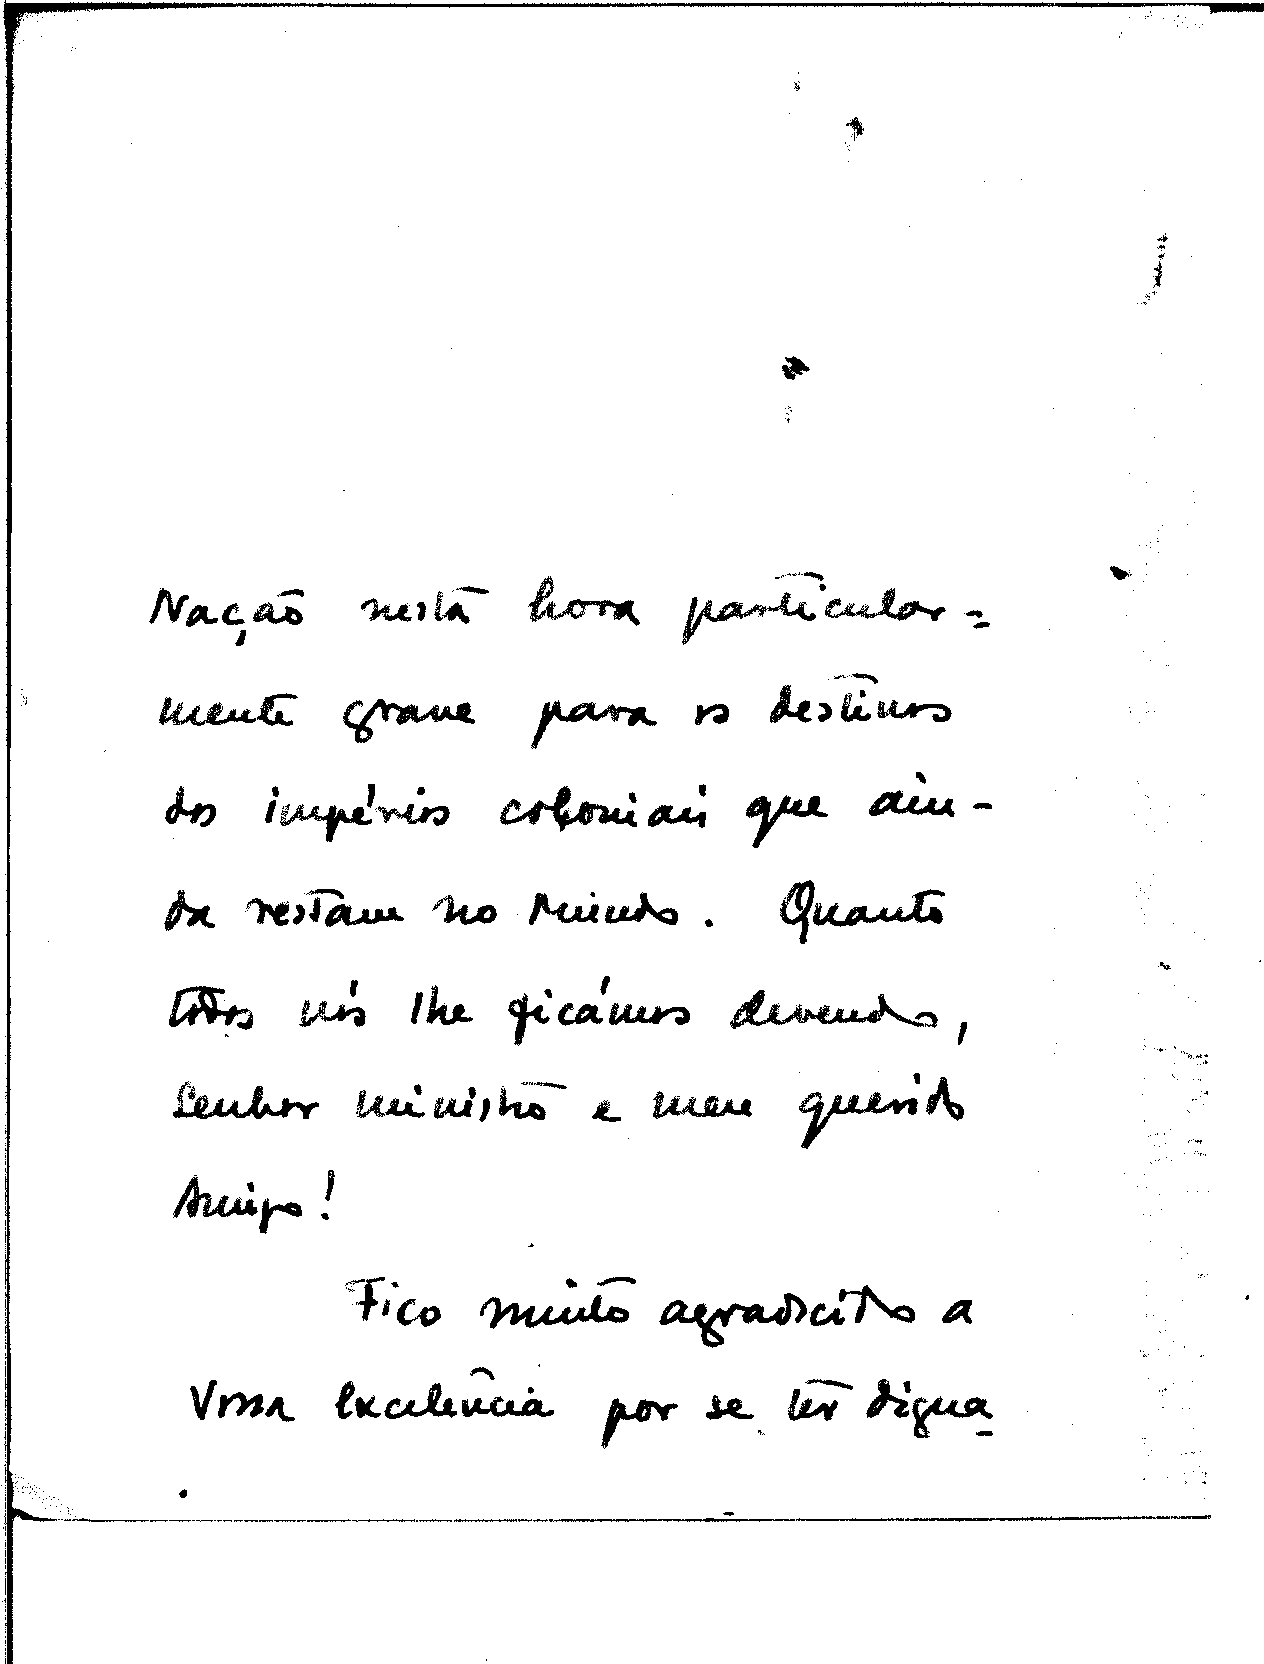 Nação nesta hora particular=
mente grave para os destinos
dos impérios coloniais que ain-
da restam no Mundo. Quanto
todos nós lhe ficámos devendo,
Senhor Ministro e meu querido
Amigo!
Fico muito agradecido a
Vossa Excelência por se ter digna-